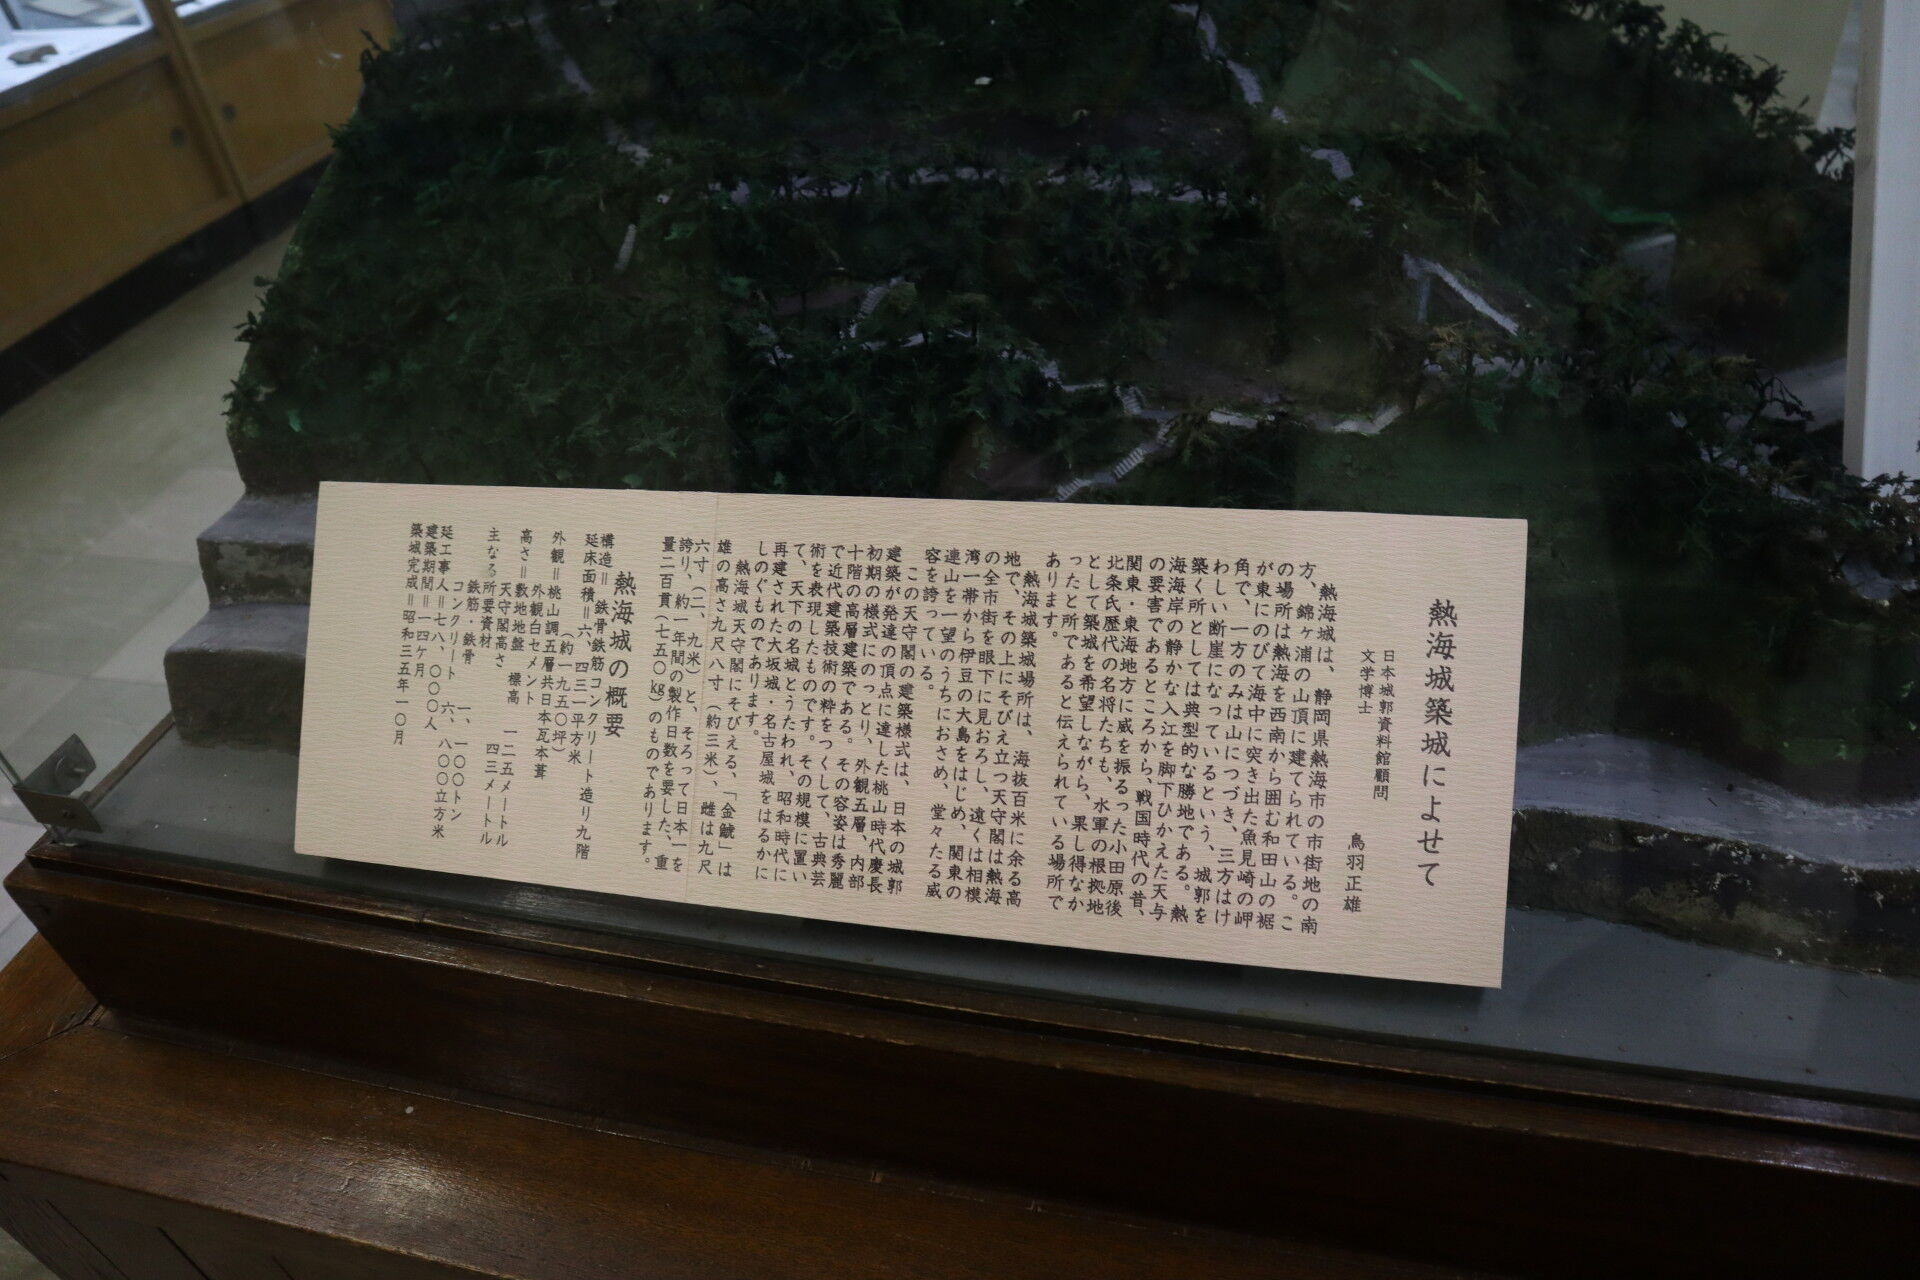 熱海城築城によせて
日本城郭資料館顧問
文学博士 鳥羽正雄
熱海城は、静岡県熱海市の市街地の南
方、錦ヶ浦の山頂に建てられている。こ
の場所は熱海を西南から囲む和田山の裾
が東にのびて海中に突き出た魚見崎の岬
角で、一方のみは山につづき、三方はけ
わしい断崖になっているという、城郭を
築く所としては典型的な勝地である。熱
海海岸の静かな入江を脚下ひかえた天与
の要害であるところから、戦国時代の昔、
関東・東海地方に威を振るった小田原後
北条氏歴代の名将たちも、水軍の根拠地
として築城を希望しながら、果し得なか
ったと所であると伝えられている場所で
あります。
熱海城築城場所は、海抜百米に余る高
地で、その上にそびえ立つ天守閣は熱海
の全市街を眼下に見おろし、遠くは相模
湾一帯から伊豆の大島をはじめ、関東の
連山を一望のうちにおさめ、堂々たる威
容を誇っている。
この天守閣の建築様式は、日本の城郭
建築が発達の頂点に達した桃山時代慶長
初期の様式にのっとり、外観五層、内部
十階の高層建築である。その容姿は秀麗
で近代建築技術の粋をつくして、古典芸
術を表現したものです。その規模に置い
て、天下の名城とうたわれ、昭和時代に
再建された大坂城・名古屋城をはるかに
しのぐものであります。
熱海城天守閣にそびえる、「金鯱」は
雄の高さ九尺八寸（約三米）、雌は九尺
六寸（二、九米）と、そろって日本一を
誇り、約一年間の製作日数を要した、重
量二百貫（七五〇kg）のものであります。
熱海城の概要
構造＝鉄骨鉄筋コンクリート造り九階
延床面積＝六、四三一平方米
（約一九五〇坪）
外観＝桃山調五層共日本瓦本葺
外観白セメント
高さ＝敷地地盤 標高 一二五メートル
天守閣高さ 四三メートル
主なる所要資材
鉄筋・鉄骨 一、一〇〇トン
コンクリート 六、八〇〇立方米
延工事人＝七八、〇〇〇人
建築期間＝一四ケ月
築城完成＝昭和三五年一〇月